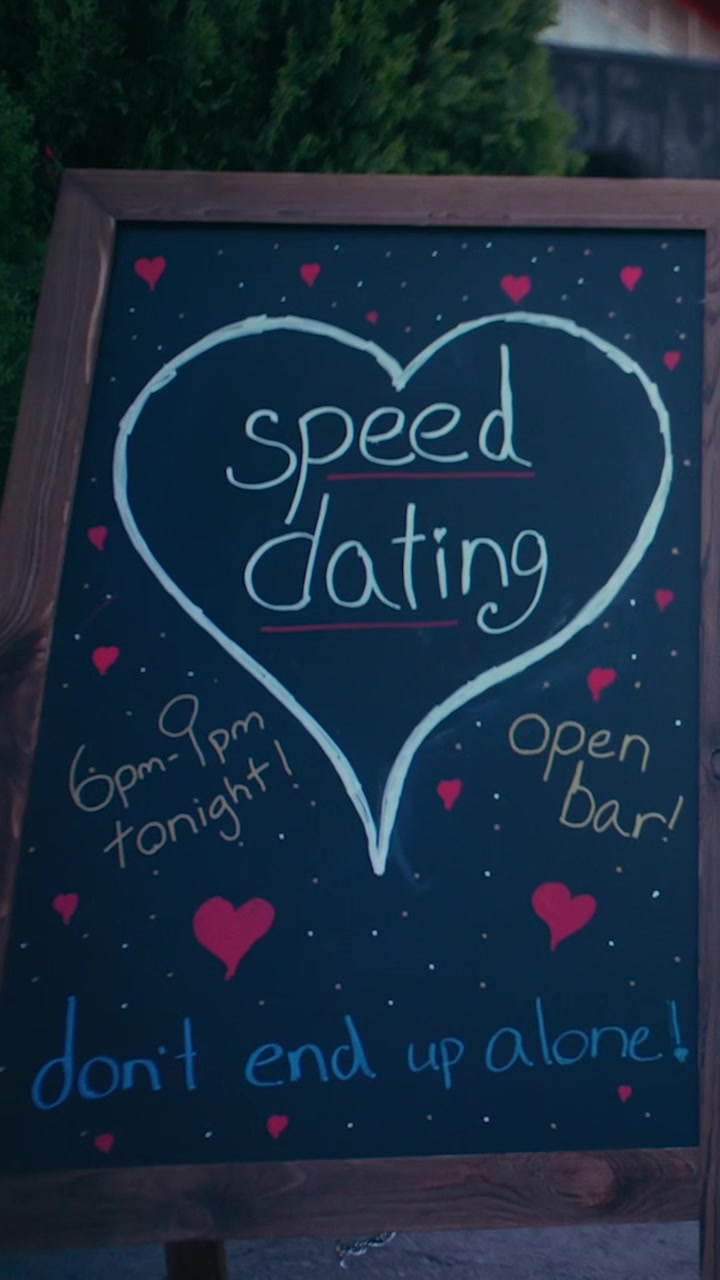 speed
dating
6pm-9pm
tonight!
open
bar!
don't end up alone!